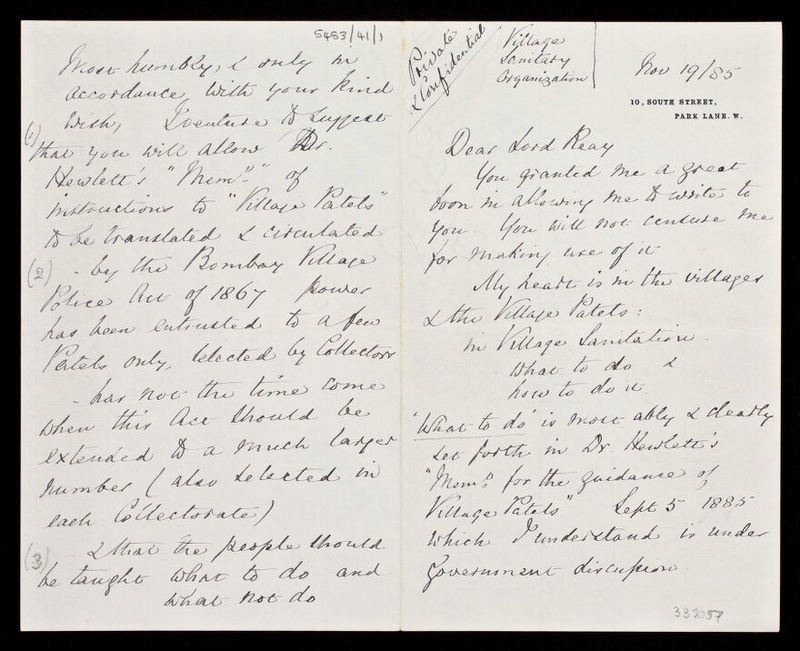 Private
& Confidential
Village
Sanitary
Organization
Nov 19/85
10, SOUTH STREET,
PARK LANE. W.
Dear Lord Reay
You granted me a great
boon in allowing me to write to
you. You will not censure me
for making use of it
My heart is in the villages
& the Village Patels:
in Village Sanitation.
What to do &
how to do it.
'What to do' is most ably & clearly
set forth in Dr. Hewlett's
"Memo for the guidance of
Village Patels" Sept 5 1885
which I understand is under
Government discussion
332057
5483/41/1
Most humbly, & only in
accordance with your kind
wish, I venture to suggest
(1)
that you will allow Dr.
Hewlett's "Memo" of
instructions to "Village Patels"
to be translated & circulated
(2) - by the Bombay Village
Police Act of 1867 power
has been entrusted to a few
Patels only, selected by Collectors
- has not the time come
when this Act should be
extended to a much larger
number (also selected in
each Collectorate)
(3) - & that the people should
be taught what to do and
what not do